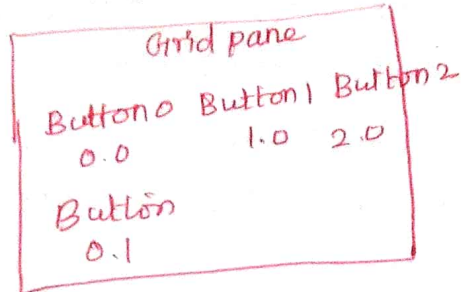 Grid pane
Button0 Button1 Button2
0.0 1.0 2.0
Button
0.1